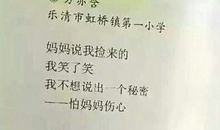 乐清市虹桥镇第一小学
妈妈说我捡来的
我笑了笑
我不想说出一个秘密
——怕妈妈伤心